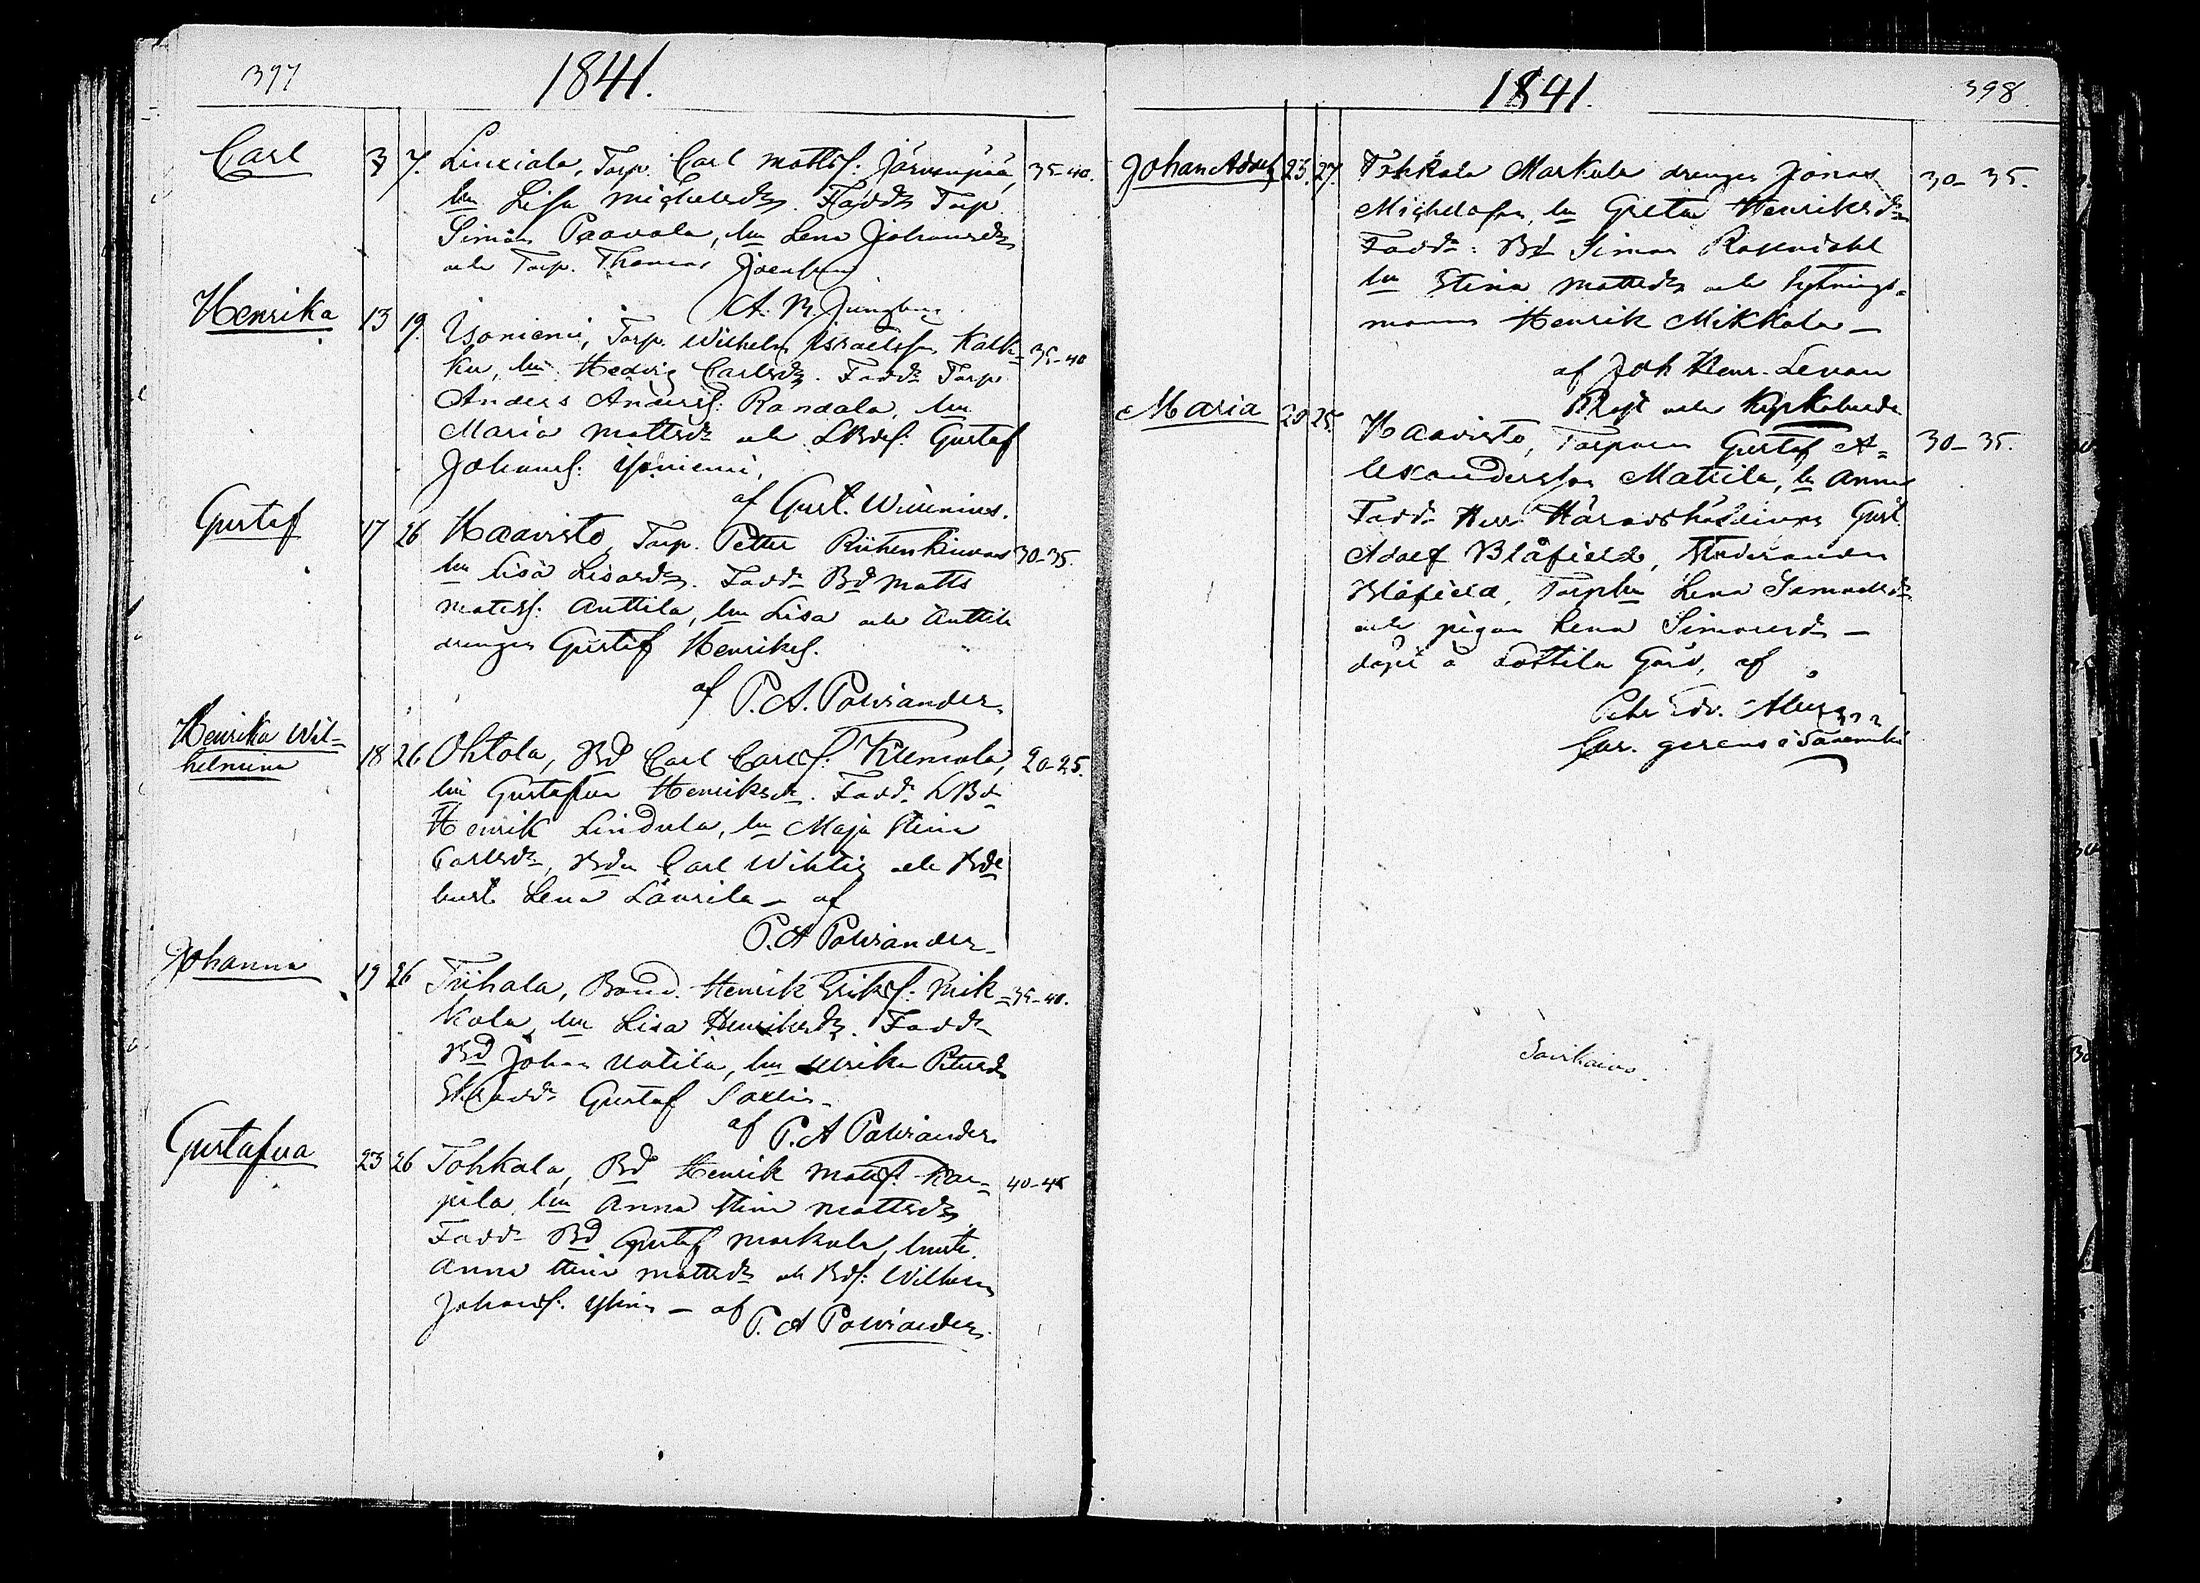 397
1841.
Carl 3 7. Linciala, Torp. Carl Mattss: Järvenpää, 35-40.
hu Lisa Michelsdr. Faddr Torp
Simon Paavola, hu Lena Johansdr
och Torp. Thomas
Henrika 13 19. Isoniemi, Torp. Wilhelm Israelsson Kark= 35-40
ku, hu Hedvig Carlsdr. Faddr Torp
Anders Anderss: Randala, hu
Maria Mattsdr och LBdes: Gustaf
Johanss: Isoniemi,
af Gust. Winnius.
Gustaf 17 26 Haavisto, Torp. Petter 30-35.
hu Lisa. Faddr Bd Matts
Matss: Anttila, hu Lisa och Anttila
drengen Gustaf Henrikss.
af P. A. Polviander.
Henrika Wil=
helmina 18 26 Ohtola, Bd Carl Carlss: 20-25.
hu Gustafva Henriksdr. Faddr LBd
Henrik Lindula, hu Maja Stina
Carlsdr, Bdn Carl Wihtig och Bde
hust. Lena Laurila — af
P. A Polviander
Johanna 19 26 Tiihala, Bond. Henrik Erikss: Mik= 35-40.
kola, hu Lisa Henriksdr. Faddr
Bd Johan Uotila, hu Ulrika Petersdr
Gustaf
af P. A Polviander
Gustafva 23 26 Tohkala, Bd Henrik Matss. Kar= 40-45
pila, hu Anna Stina Mattsdr
Faddr Bd Gustaf Markula, hust.
Anna Stina Mattsdr och Bds: Wilhelm
Johanss. — af P. A Polviander
1841.
398.
Johan Adolf 23. 27. Tohkala Markula drengen Jonas 30-35.
Michelsson, hu Greta Henriksdr
Faddr: Bd Simon Rosendahl
hu Stina Mattsdr och hytnings=
mannen Henrik Mikkola —
af Joh Henr. Levan
Prost och Kyrkoherde
Maria 20 25. Haavisto, Torparen Gustaf A= 30-35.
lexandersson Mattila, hu Anna
Faddr Herr Häradshöfdingen Gust
Adolf Blåfield, Studeranden
Blåfield, Torphu Lena Samuelsdr
och pigan Lena Simonsdr —
döpt å Sottila Gård, af
Petr Edv.
Cur. gerens i Säkemäki
Savikaivo.